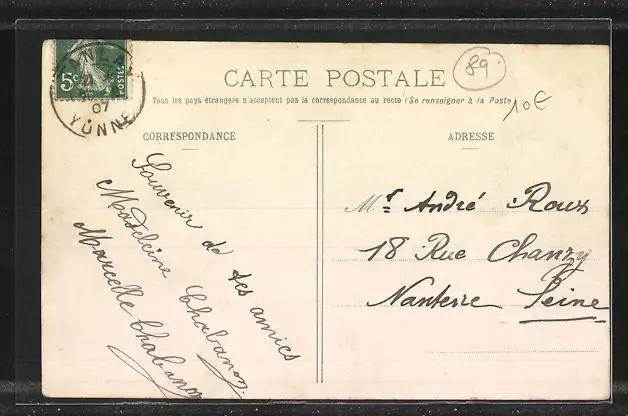 5c
POSTES
07
YONNE
89
CARTE POSTALE
Tous les pays étrangers n'acceptent pas la correspondance au recto (Se renseigner à la Poste)
10€
CORRESPONDANCE
ADRESSE
Souvenir de tes amies
Madeleine Chabanoz.
Marcelle Chabanoz
Mr. André Roux
18 Rue Chanzy
Nanterre Seine